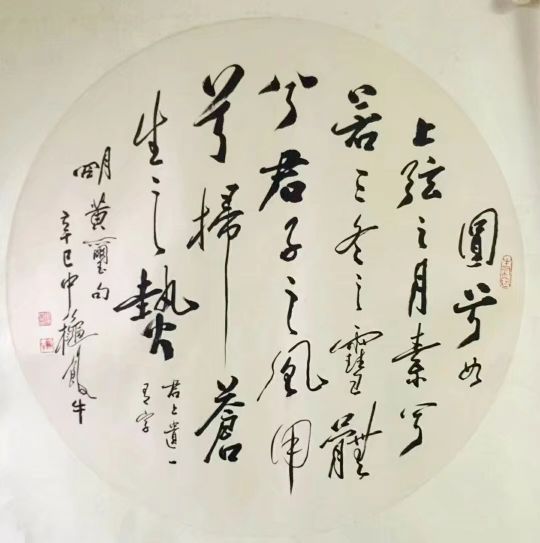 圓兮如
上弦之月素兮
若三冬之雪體
兮君子之風用
兮掃蒼
生之熱
君上遺一
有字
明黃璽句
辛巳中龝飯牛